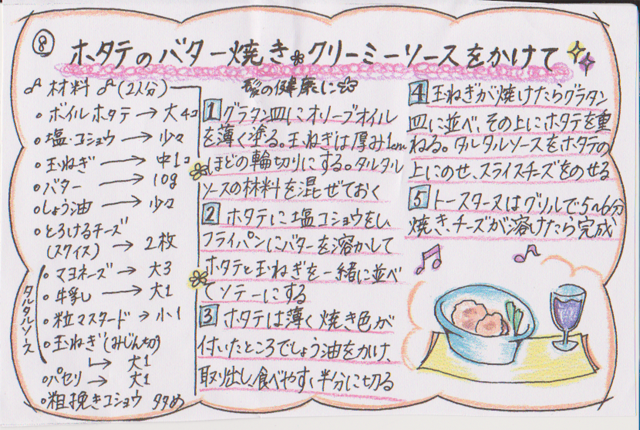 ⑧
ホタテのバター焼き クリーミーソースをかけて
材料 (2人分)
ボイルホタテ → 大4コ
塩・コショウ → 少々
玉ねぎ → 中1コ
バター → 10g
しょう油 → 少々
とろけるチーズ
(スライス) → 2枚
タルタルソース
マヨネーズ → 大3
牛乳 → 大1
粒マスタード → 小1
玉ねぎ(みじん切り)
→ 大1
パセリ → 大1
粗挽きコショウ 少々
の健康に
1 グラタン皿にオリーブオイル
を薄く塗る。玉ねぎは厚み1cm
ほどの輪切りにする。タルタル
ソースの材料を混ぜておく
2 ホタテに塩コショウをし
フライパンにバターを溶かして
ホタテと玉ねぎを一緒に並べ
てソテーにする
3 ホタテは薄く焼き色が
付いたところでしょう油をかけ、
取り出し食べやすい半分に切る
4 玉ねぎが焼けたらグラタン
皿に並べ、その上にホタテを重
ねる。タルタルソースをホタテの
上にのせ、スライスチーズをのせる
5 トースター又はグリルで5~6分
焼き、チーズが溶けたら完成